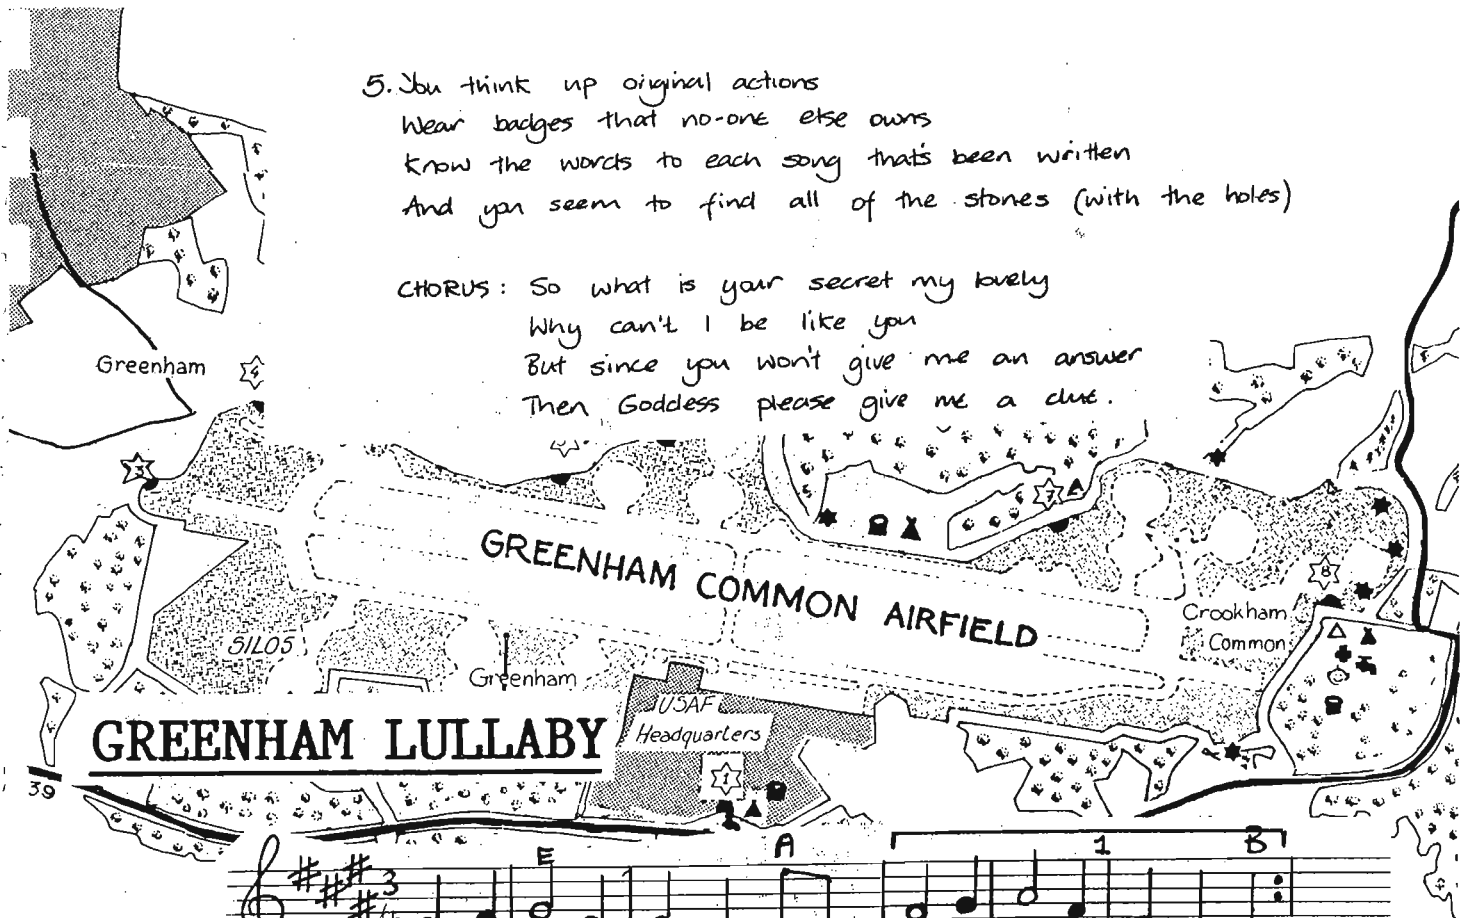 5. You think up original actions
Wear badges that no-one else owns
Know the words to each song that's been written
And you seem to find all of the stones (with the holes)
CHORUS: So what is your secret my lovely
Why can't I be like you
But since you won't give me an answer
Then Goddess please give me a clue.
Greenham
4
3
7
GREENHAM COMMON AIRFIELD
8
Crookham
Common
SILOS
Greenham
USAF
Headquarters
1
GREENHAM LULLABY
39
E A 1 B
3